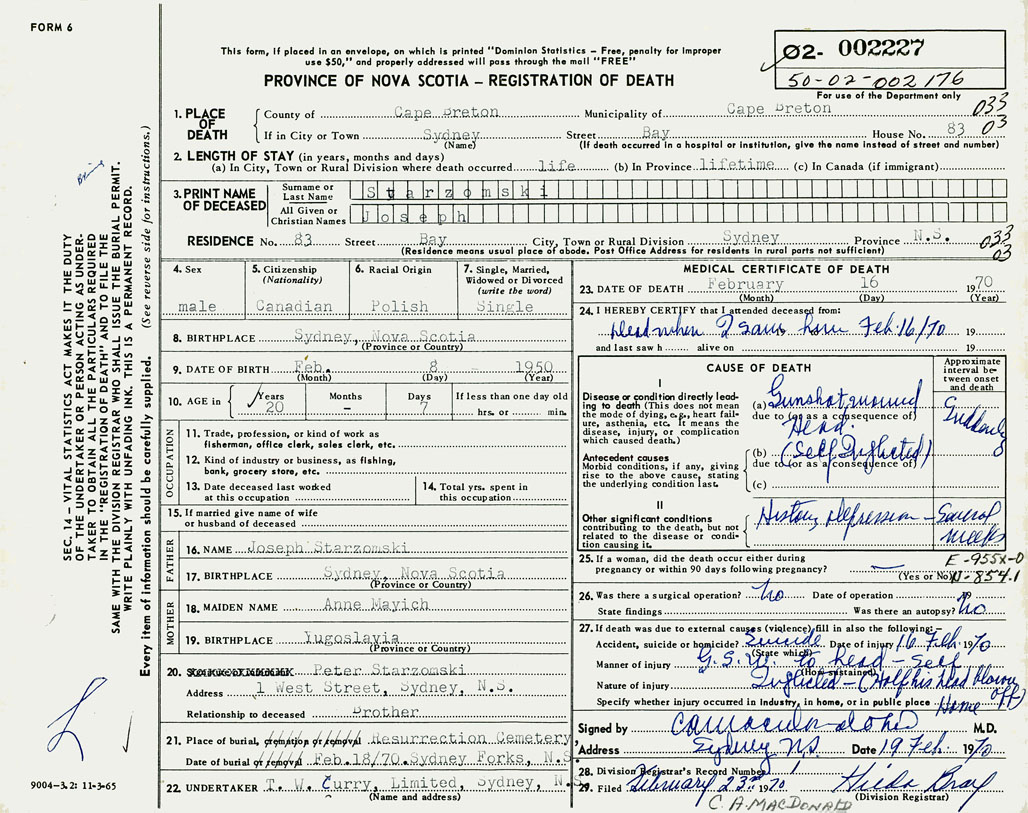 FORM 6
This form, if placed in an envelope, on which is printed "Dominion Statistics — Free, penalty for improper
use $50," and properly addressed will pass through the mail "FREE"
PROVINCE OF NOVA SCOTIA — REGISTRATION OF DEATH
02- 002227
50-02-002176
For use of the Department only
1. PLACE OF DEATH
County of Cape Breton Municipality of Cape Breton 033
If in City or Town Sydney Street Bay House No. 83 03
(Name) (If death occurred in a hospital or institution, give the name instead of street and number)
2. LENGTH OF STAY (in years, months and days)
(a) In City, Town or Rural Division where death occurred life (b) In Province lifetime (c) In Canada (if immigrant)
3. PRINT NAME OF DECEASED
Surname or Last Name Starzomski
All Given or Christian Names Joseph
RESIDENCE No. 83 Street Bay City, Town or Rural Division Sydney Province N.S. 033
(Residence means usual place of abode. Post Office Address for residents in rural parts not sufficient) 03
4. Sex male
5. Citizenship (Nationality) Canadian
6. Racial Origin Polish
7. Single, Married, Widowed or Divorced (write the word) Single
8. BIRTHPLACE Sydney, Nova Scotia
(Province or Country)
9. DATE OF BIRTH Feb. 8 1950
(Month) (Day) (Year)
10. AGE in Years 20 Months - Days 7 If less than one day old hrs. or min.
OCCUPATION
11. Trade, profession, or kind of work as
fisherman, office clerk, sales clerk, etc.
12. Kind of industry or business, as fishing,
bank, grocery store, etc.
13. Date deceased last worked
at this occupation
14. Total yrs. spent in
this occupation
15. If married give name of wife
or husband of deceased
FATHER
16. NAME Joseph Starzomski
17. BIRTHPLACE Sydney, Nova Scotia
(Province or Country)
MOTHER
18. MAIDEN NAME Anne Mayich
19. BIRTHPLACE Yugoslavia
(Province or Country)
20. Peter Starzomski
Address 1 West Street, Sydney, N.S.
Relationship to deceased Brother
21. Place of burial, cremation or removal Resurrection Cemetery,
Date of burial or removal Feb.18/70. Sydney Forks, N.S.
22. UNDERTAKER T. W. Curry, Limited, Sydney, N.S.
(Name and address)
MEDICAL CERTIFICATE OF DEATH
23. DATE OF DEATH February 16 1970
(Month) (Day) (Year)
24. I HEREBY CERTIFY that I attended deceased from:
Dead when I saw him Feb 16/70 19
and last saw h alive on 19
CAUSE OF DEATH
Approximate interval between onset and death
I
Disease or condition directly leading to death (This does not mean the mode of dying, e.g., heart failure, asthenia, etc. It means the disease, injury, or complication which caused death.)
(a) Gunshot wound Suddenly
due to (or as a consequence of)
Head.
Antecedent causes
Morbid conditions, if any, giving rise to the above cause, stating the underlying condition last.
(b) (Self Inflicted)
due to (or as a consequence of)
(c)
II
Other significant conditions
contributing to the death, but not related to the disease or condition causing it.
History Depression — Several weeks
25. If a woman, did the death occur either during
pregnancy or within 90 days following pregnancy? —
(Yes or No)
E-955X-0
N-854.1
26. Was there a surgical operation? No Date of operation 19
State findings Was there an autopsy? No
27. If death was due to external causes (violence) fill in also the following:—
Accident, suicide or homicide? Suicide Date of injury 16 Feb 1970
(State which)
Manner of injury G.S.W. to head — self
(How sustained)
Nature of injury Inflicted — (Half his head blown off)
Specify whether injury occurred in industry, in home, or in public place Home
Signed by M.D.
Address Sydney NS Date 19 Feb 1970
28. Division Registrar's Record Number 1
29. Filed February 23rd 1970 Hilda Bray
(Division Registrar)
C. A. MACDONALD
SEC. 14 — VITAL STATISTICS ACT MAKES IT THE DUTY
OF THE UNDERTAKER OR PERSON ACTING AS UNDERTAKER
TO OBTAIN ALL THE PARTICULARS REQUIRED
IN THE "REGISTRATION OF DEATH" AND TO FILE THE
SAME WITH THE DIVISION REGISTRAR WHO SHALL ISSUE THE BURIAL PERMIT.
WRITE PLAINLY WITH UNFADING INK. THIS IS A PERMANENT RECORD.
Every item of information should be carefully supplied. (See reverse side for instructions.)
9004-3.2: 11-3-65